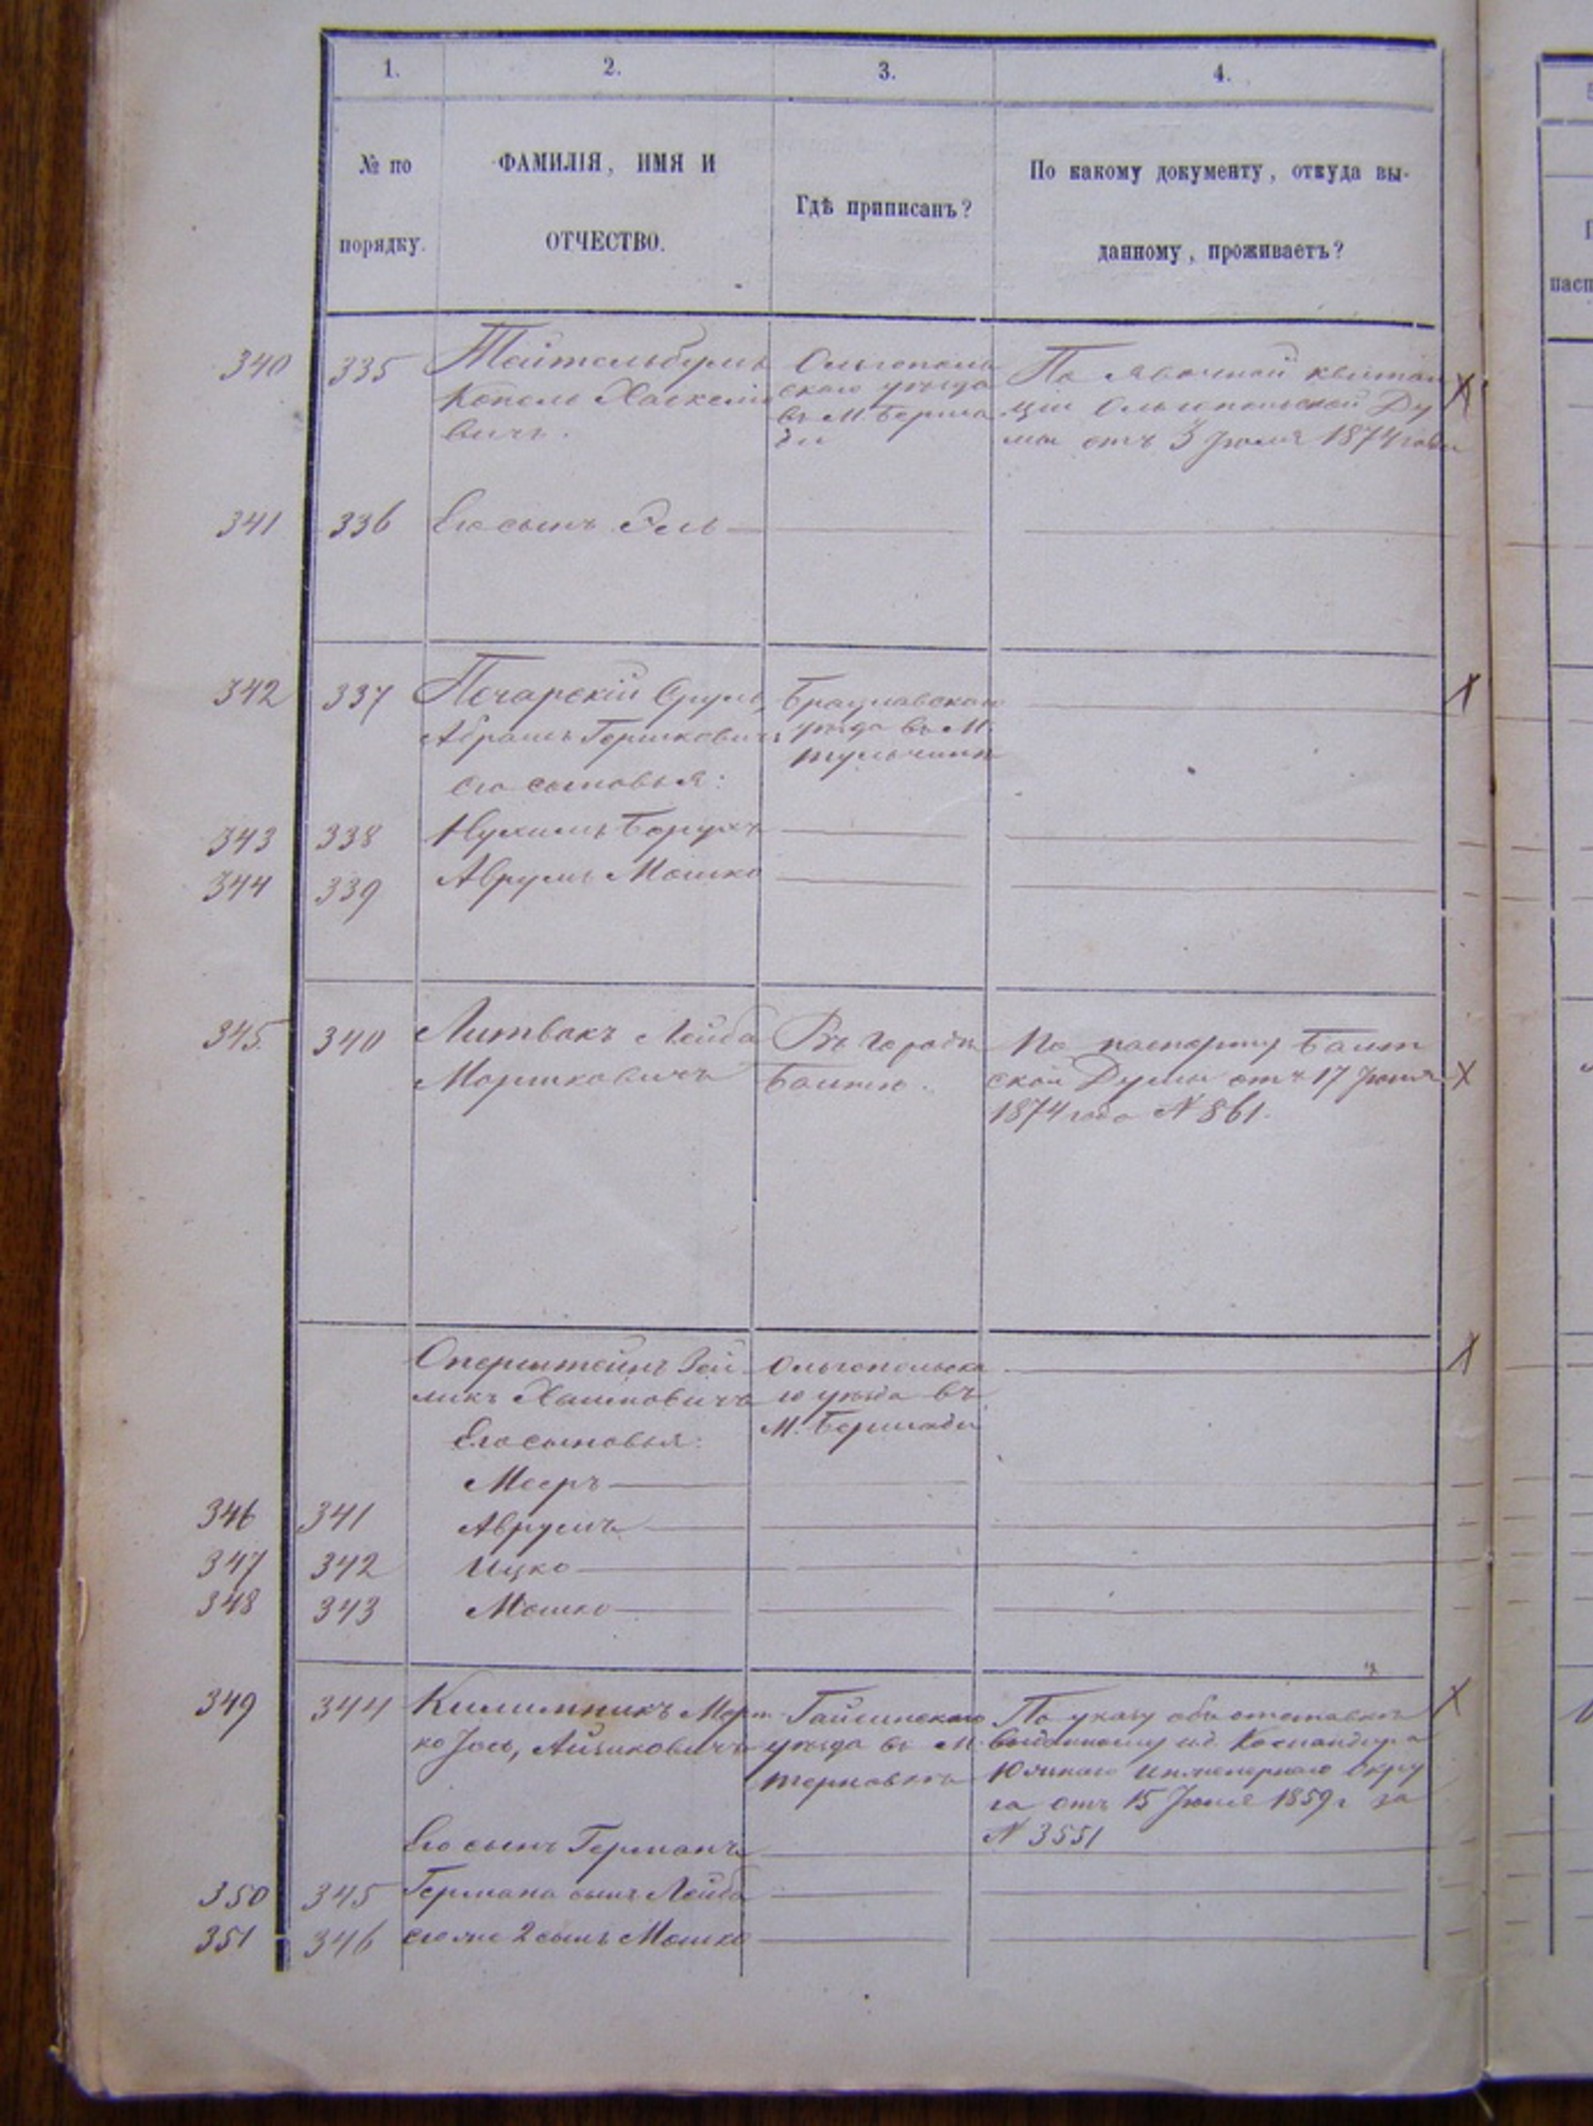 1. 2. 3. 4.
№ по
порядку.
ФАМИЛІЯ, ИМЯ И
ОТЧЕСТВО.
Гдѣ приписанъ?
По какому документу, откуда вы-
данному, проживаетъ?
340 335 Тейтельбумъ
Копель Хаскеле
вичъ.
Ольгополь
скаго уѣзда
въ М. Берша
ди
По явочной квитан
ціи Ольгопольской Ду
мы отъ 3 Іюля 1874 года
341 336 Его сынъ Эль
342 337 Печарскій Сруль,
Абрамъ Гершковичъ
Его сыновья:
Брацлавскаго
уѣзда въ М.
Тульчинѣ
343 338 Нухимъ Борухъ
344 339 Аврумъ Мошко
345. 340 Литвакъ Лейба
Моршковичъ
Въ Городѣ
Балтѣ.
По паспорту Балт
ской Думы отъ 17 Іюня
1874 года № 861.
Оперштейнъ Зей
ликъ Хаимовичъ
Его сыновья:
Ольгопольска
го уѣзда въ
М. Бершади
Мееръ
346 341 Аврумъ
347 342 Ицко
348 343 Мошко
349 344 КилимникъМорт
ко Іось, Айзиковичъ
Гайсинскаго
уѣзда въ М.
Терновкѣ
По указу объ отставкѣ
выданному ид. Командира
Южнаго Инженернаго Окру
га отъ 15 Іюня 1859 г за
№ 3551
Его сынъ Германъ
350 345 Германа сынъ Лейба
351 346 его же 2 сынъ Мошко
пасп